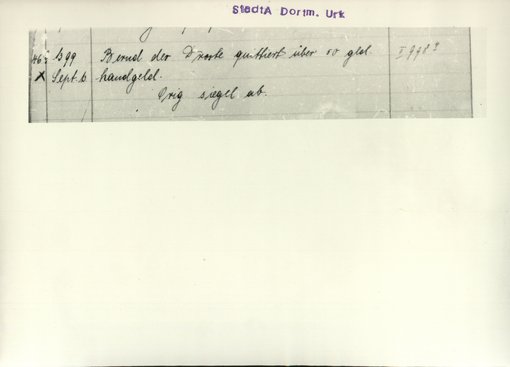 StadtA Dortm. Urk
1399 Bernd der Droste quittiert über 10 gld.
Sept. 6 handgeld.
Orig siegel ab.